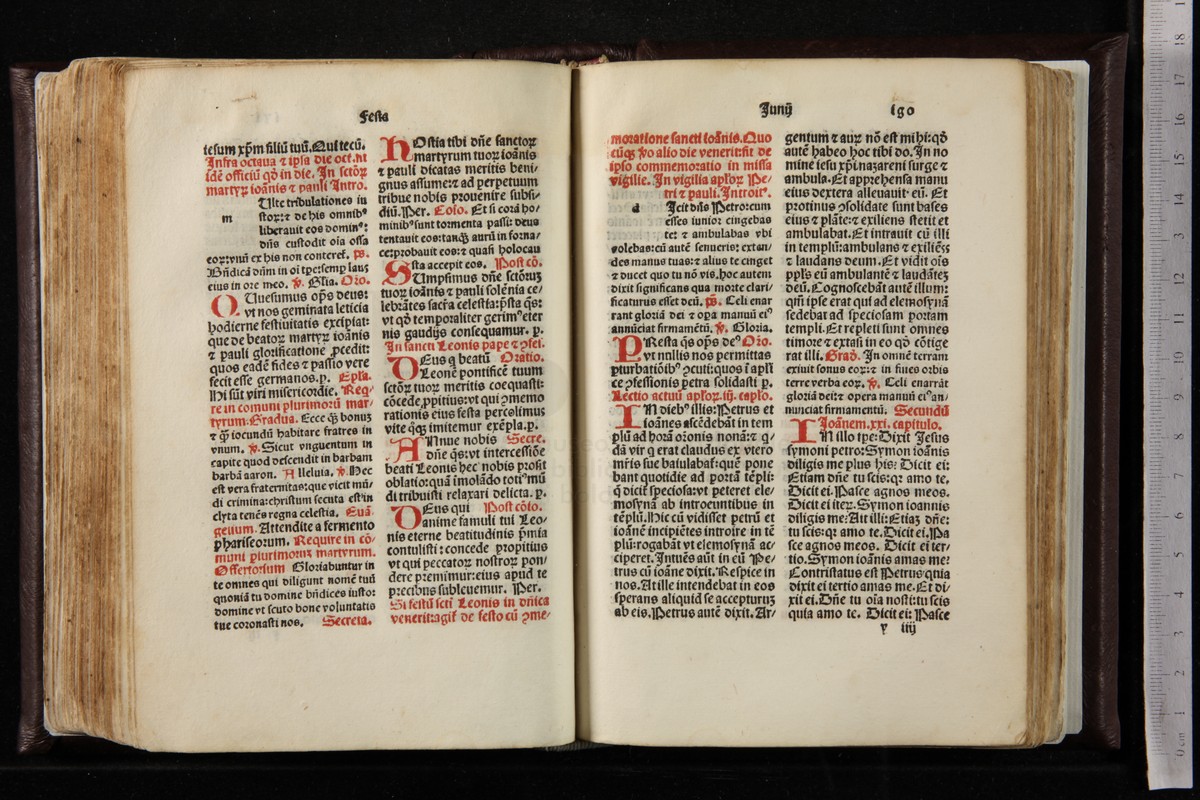 Festa
iesum xp̄m filiū tuū. Qui tecū.
Infra octauā ⁊ ipsa die oct. fit
idē officiū qḋ in die. In sctōꝝ
martyꝝ ioānis ⁊ pauli Intro.
m Ulte tribulationes iu
stoꝝ: ⁊ de his omnibꝰ
liberauit eos dominꝰ:
dn̄s custodit oīa ossa
eoꝝ: vnū ex his non conteret. ps.
Bn̄dicā dn̄m in oī tpe: semp laus
eius in ore meo. ℣. Gl̄ia. Oro.
QUesumus op̄s deus:
vt nos geminata leticia
hodierne festiuitatis excipiat:
que de beatoꝝ martyꝝ ioānis
⁊ pauli glorificatione ꝓcedit:
quos eadē fides ⁊ passio vere
fecit esse germanos. p. Epl̄a.
Hi sūt viri misericordie. Req̄
re in comuni plurimorū mar
tyrum. Gradua. Ecce q̄ bonuꝫ
⁊ q̄ iocundū habitare fratres in
vnum. ℣. Sicut vnguentum in
capite quod descendit in barbam
barbā aaron. Alleluia. ℣. Hec
est vera fraternitas: que vicit mū
di crimina: christum secuta est in
clyta tenēs regna celestia. Euā
gelium. Attendite a fermento
phariseorum. Require in cō
muni plurimoruꝫ martyrum.
Offertorium Gloriabuntur in
te omnes qui diligunt nomē tuū
quoniā tu domine bn̄dices iusto:
domine vt scuto bone voluntatis
tue coronasti nos. Secreta.
HOstia tibi dn̄e sanctoꝝ
martyrum tuoꝝ ioānis
⁊ pauli dicatas meritis beni
gnus assume: ⁊ ad perpetuum
tribue nobis prouenire subsi
diū. Per. Cōio. Et si corā ho
minibꝰ sunt tormenta passi: deus
tentauit eos: tanq̄ʒ aurū in forna
ce: probauit eos: ⁊ quasi holocau
sta accepit eos. Post cō.
SUmpsimus dn̄e sctōruꝫ
tuoꝝ ioānis ⁊ pauli solēnia ce
lebrātes sacra celestia: p̄sta q̄s:
vt qḋ temporaliter gerimꝰ eter
nis gaudijs consequamur. p.
In sancti Leonis pape ⁊ ꝯfes.
DEus q beatū Oratio.
Leonē pontificē tuum
sctōꝝ tuoꝝ meritis coequasti:
cōcede ꝓpitius: vt qui ꝯmemo
rationis eius festa percolimus
vite q̄qꝫ imitemur exēpla. p.
ANnue nobis Secre.
dn̄e q̄s: vt intercessiōe
beati Leonis hec nobis prosit
oblatio: quā imolādo totiꝰ mū
di tribuisti relaxari delicta. p.
DEus qui Post cōio.
anime famuli tui Leo
nis eterne beatitudinis p̄mia
contulisti: concede propitius
vt qui peccatoꝝ nostroꝝ pon
dere p̄mimur: eius apud te
precibus subleuemur. Per.
Si festū scti Leonis in dn̄ica
venerit: agiť de festo cū ꝯme
Junij 190
moratione sancti ioānis. Quo
cūqꝫ ꝟo alio die venerit: fit de
ipso commemoratio in missa
vigilie. In vigilia apl̄oꝝ Pe
tri ⁊ pauli. Introitꝰ.
d Icit dn̄s Petro: cum
esses iunior cingebas
te: ⁊ ambulabas vbi
volebas: cū autē senueris: exten
des manus tuas: ⁊ alius te cinget
⁊ ducet quo tu nō vis. hoc autem
dixit significans qua morte clari
ficaturus esset deū. ps. Celi enar
rant gloriā dei ⁊ oꝑa manuū eiꝰ
annūciat firmamētū. ℣. Gloria.
PResta q̄s op̄s deꝰ Oro.
vt nullis nos permittas
ꝑturbatiōibꝰ ꝯcuti: quos ī apl̄i
ce ꝯfessionis petra solidasti p.
Lectio actuū apl̄oꝝ. iij. capl̄o.
IN diebꝰ illis: Petrus et
ioānes ascēdebāt in tem
plū ad horā orōnis nonā: ⁊ q
dā vir q erat claudus ex vtero
mr̄is sue baiulabať: quē pone
bant quotidie ad portā tēpli:
q̄ dicit̄ speciosa: vt peteret ele
mosynā ab introeuntibus in
tēplū. Hic cū vidisset petrū et
ioānē incipiētes introire in tē
plū: rogabāt vt elemosynā ac
ciperet. Intuēs aūt in eū Pe
trus cū ioāne dixit. Respice in
nos. At ille intendebat in eos
sperans aliquid se accepturuꝫ
ab eis. Petrus autē dixit. Ar
gentum ⁊ auꝝ nō est mihi: qḋ
autē habeo hoc tibi do. In no
mine iesu xp̄i nazareni surge ⁊
ambula. Et apprehensa manu
eius dextera alleuauit eū. Et
protinus ꝯsolidate sunt bases
eius ⁊ plāte: ⁊ exiliens stetit et
ambulabat. Et intrauit cū illi
in templū: ambulans ⁊ exiliēs
⁊ laudans deum. Et vidit oīs
ppl̄s eū ambulantē ⁊ laudāteꝫ
deū. Cognoscebāt autē illum:
qm̄ ipse erat qui ad elemosynā
sedebat ad speciosam portam
templi. Et repleti sunt omnes
timore ⁊ extasi in eo qḋ cōtige
rat illi. Grad. In omnē terram
exiuit sonus eoꝝ: ⁊ in fines orbis
terre verba eoꝝ. ℣. Celi enarrāt
gloriā dei: ⁊ opera manuū eiꝰ an
nunciat firmamentū. Secundū
Joānem. xxi. capitulo.
IN illo tpe: Dixit Jesus
symoni petro: Symon ioannis
diligis me plus his: Dicit ei:
Etiam dn̄e tu scis: qꝛ amo te.
Dicit ei. Pasce agnos meos.
Dicit ei iteꝝ. Symon ioannis
diligis me: Ait illi: Etiaꝫ dn̄e:
tu scis: qꝛ amo te. Dicit ei. Pa
sce agnos meos. Dicit ei ter
tio. Symon ioānis amas me:
Contristatus est Petrus: quia
dixit ei tertio amas me. Et di
xit ei. Dn̄e tu oīa nosti: tu scis
quia amo te. Dicit ei: Pasce
y iiij